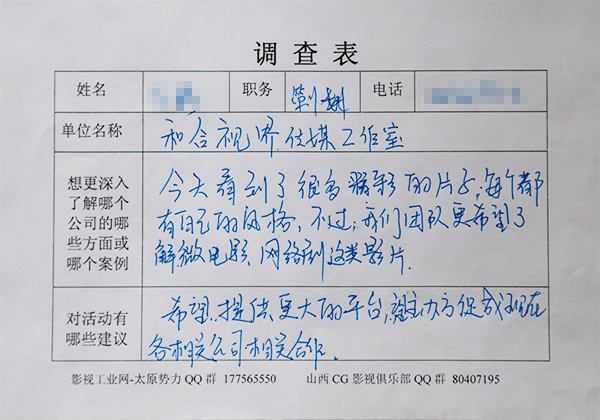 调查表
姓名 职务 电话
单位名称 和合视界传媒工作室
想更深入了解哪个公司的哪些方面或哪个案例
今天看到了很多精彩的片子,每个都
有自己的风格,不过,我们团队更希望了
解微电影、网络剧这类影片.
对活动有哪些建议
希望提供更大的平台,望主办方促成现在
各相关公司相关合作.
影视工业网-太原势力QQ群 177565550 山西CG影视俱乐部QQ群 80407195